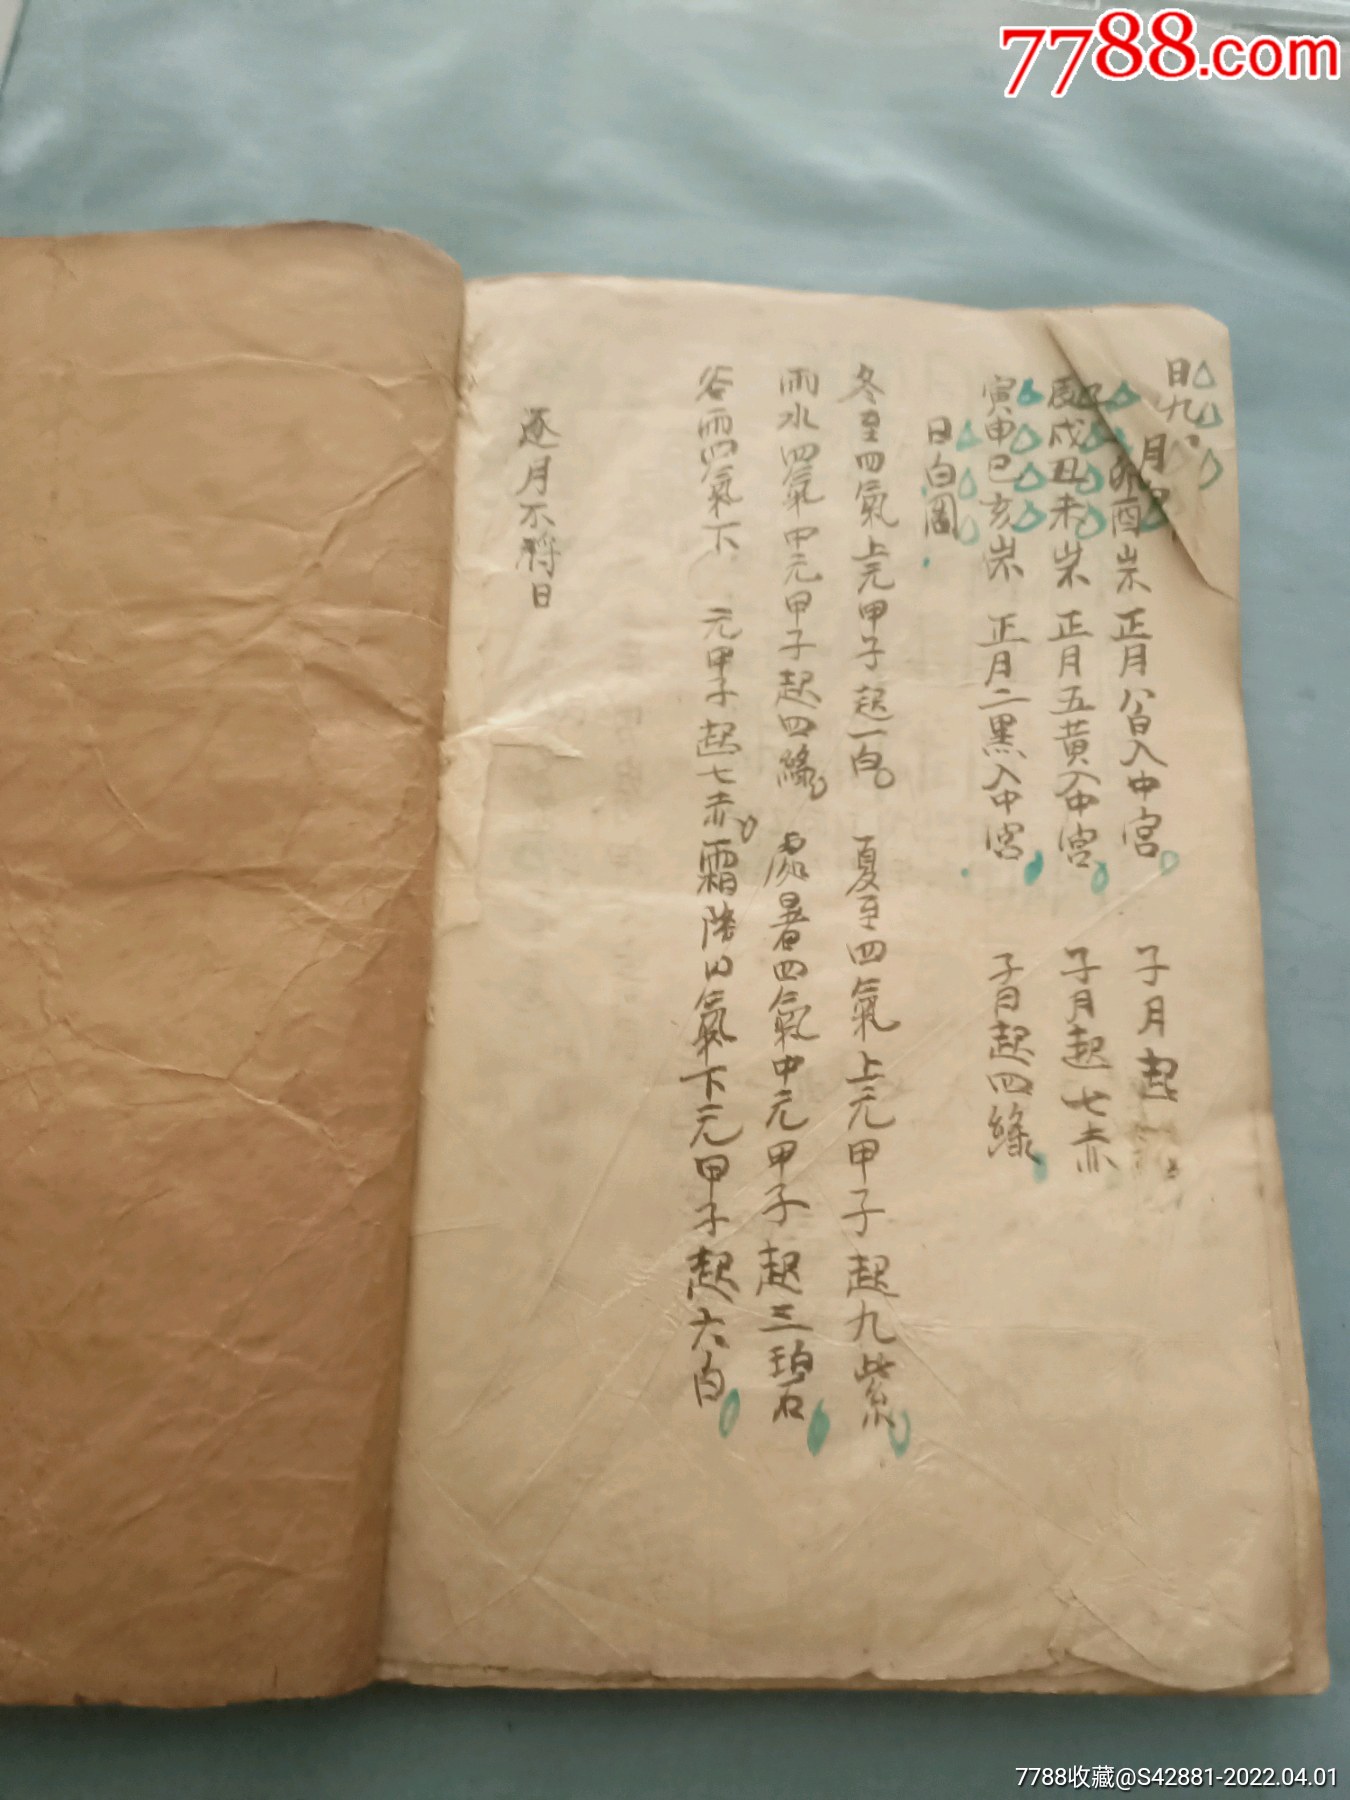 7788.com
日九
月
卯酉岁 正月八白入中宫 子月起
辰戌丑未岁 正月五黄入中宫 子月起七赤
寅申巳亥岁 正月二黑入中宫 子月起四綠
日白圖
冬至四氣上元甲子起一白 夏至四氣上元甲子起九紫
雨水四氣中元甲子起四綠 處暑四氣中元甲子起三碧
谷雨四氣下元甲子起七赤 霜降四氣下元甲子起六白
逐月不将日
7788收藏@S42881-2022.04.01